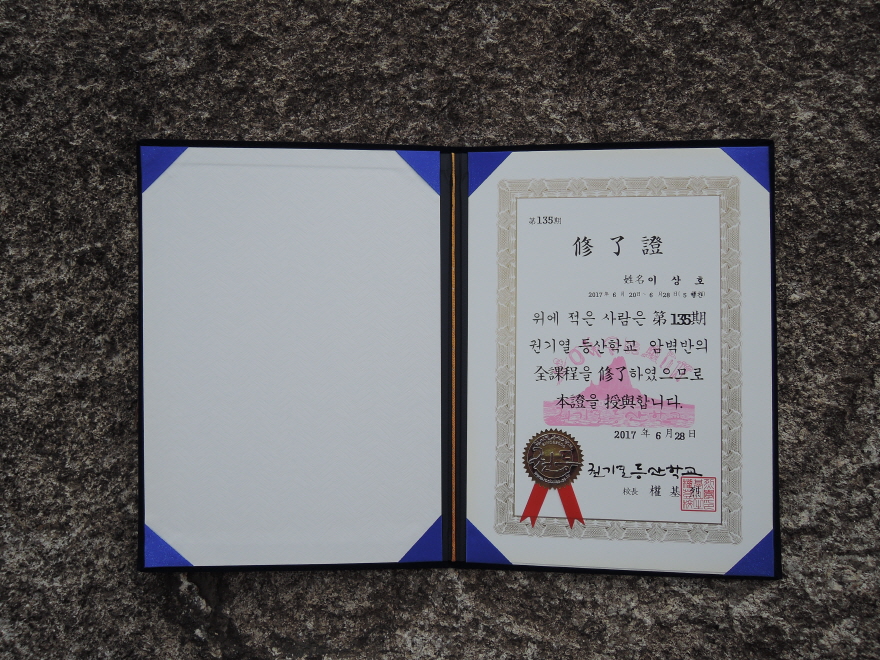 第135期
修了證
姓名 이 상 호
2017 年 6 月 20日 - 6 月 28 日
위에 적은 사람은 第135期
권기열 등산학교 암벽반의
全課程을 修了하였으므로
本證을 授與합니다.
2017 年 6 月 28 日
권기열등산학교
校長 權 基 烈